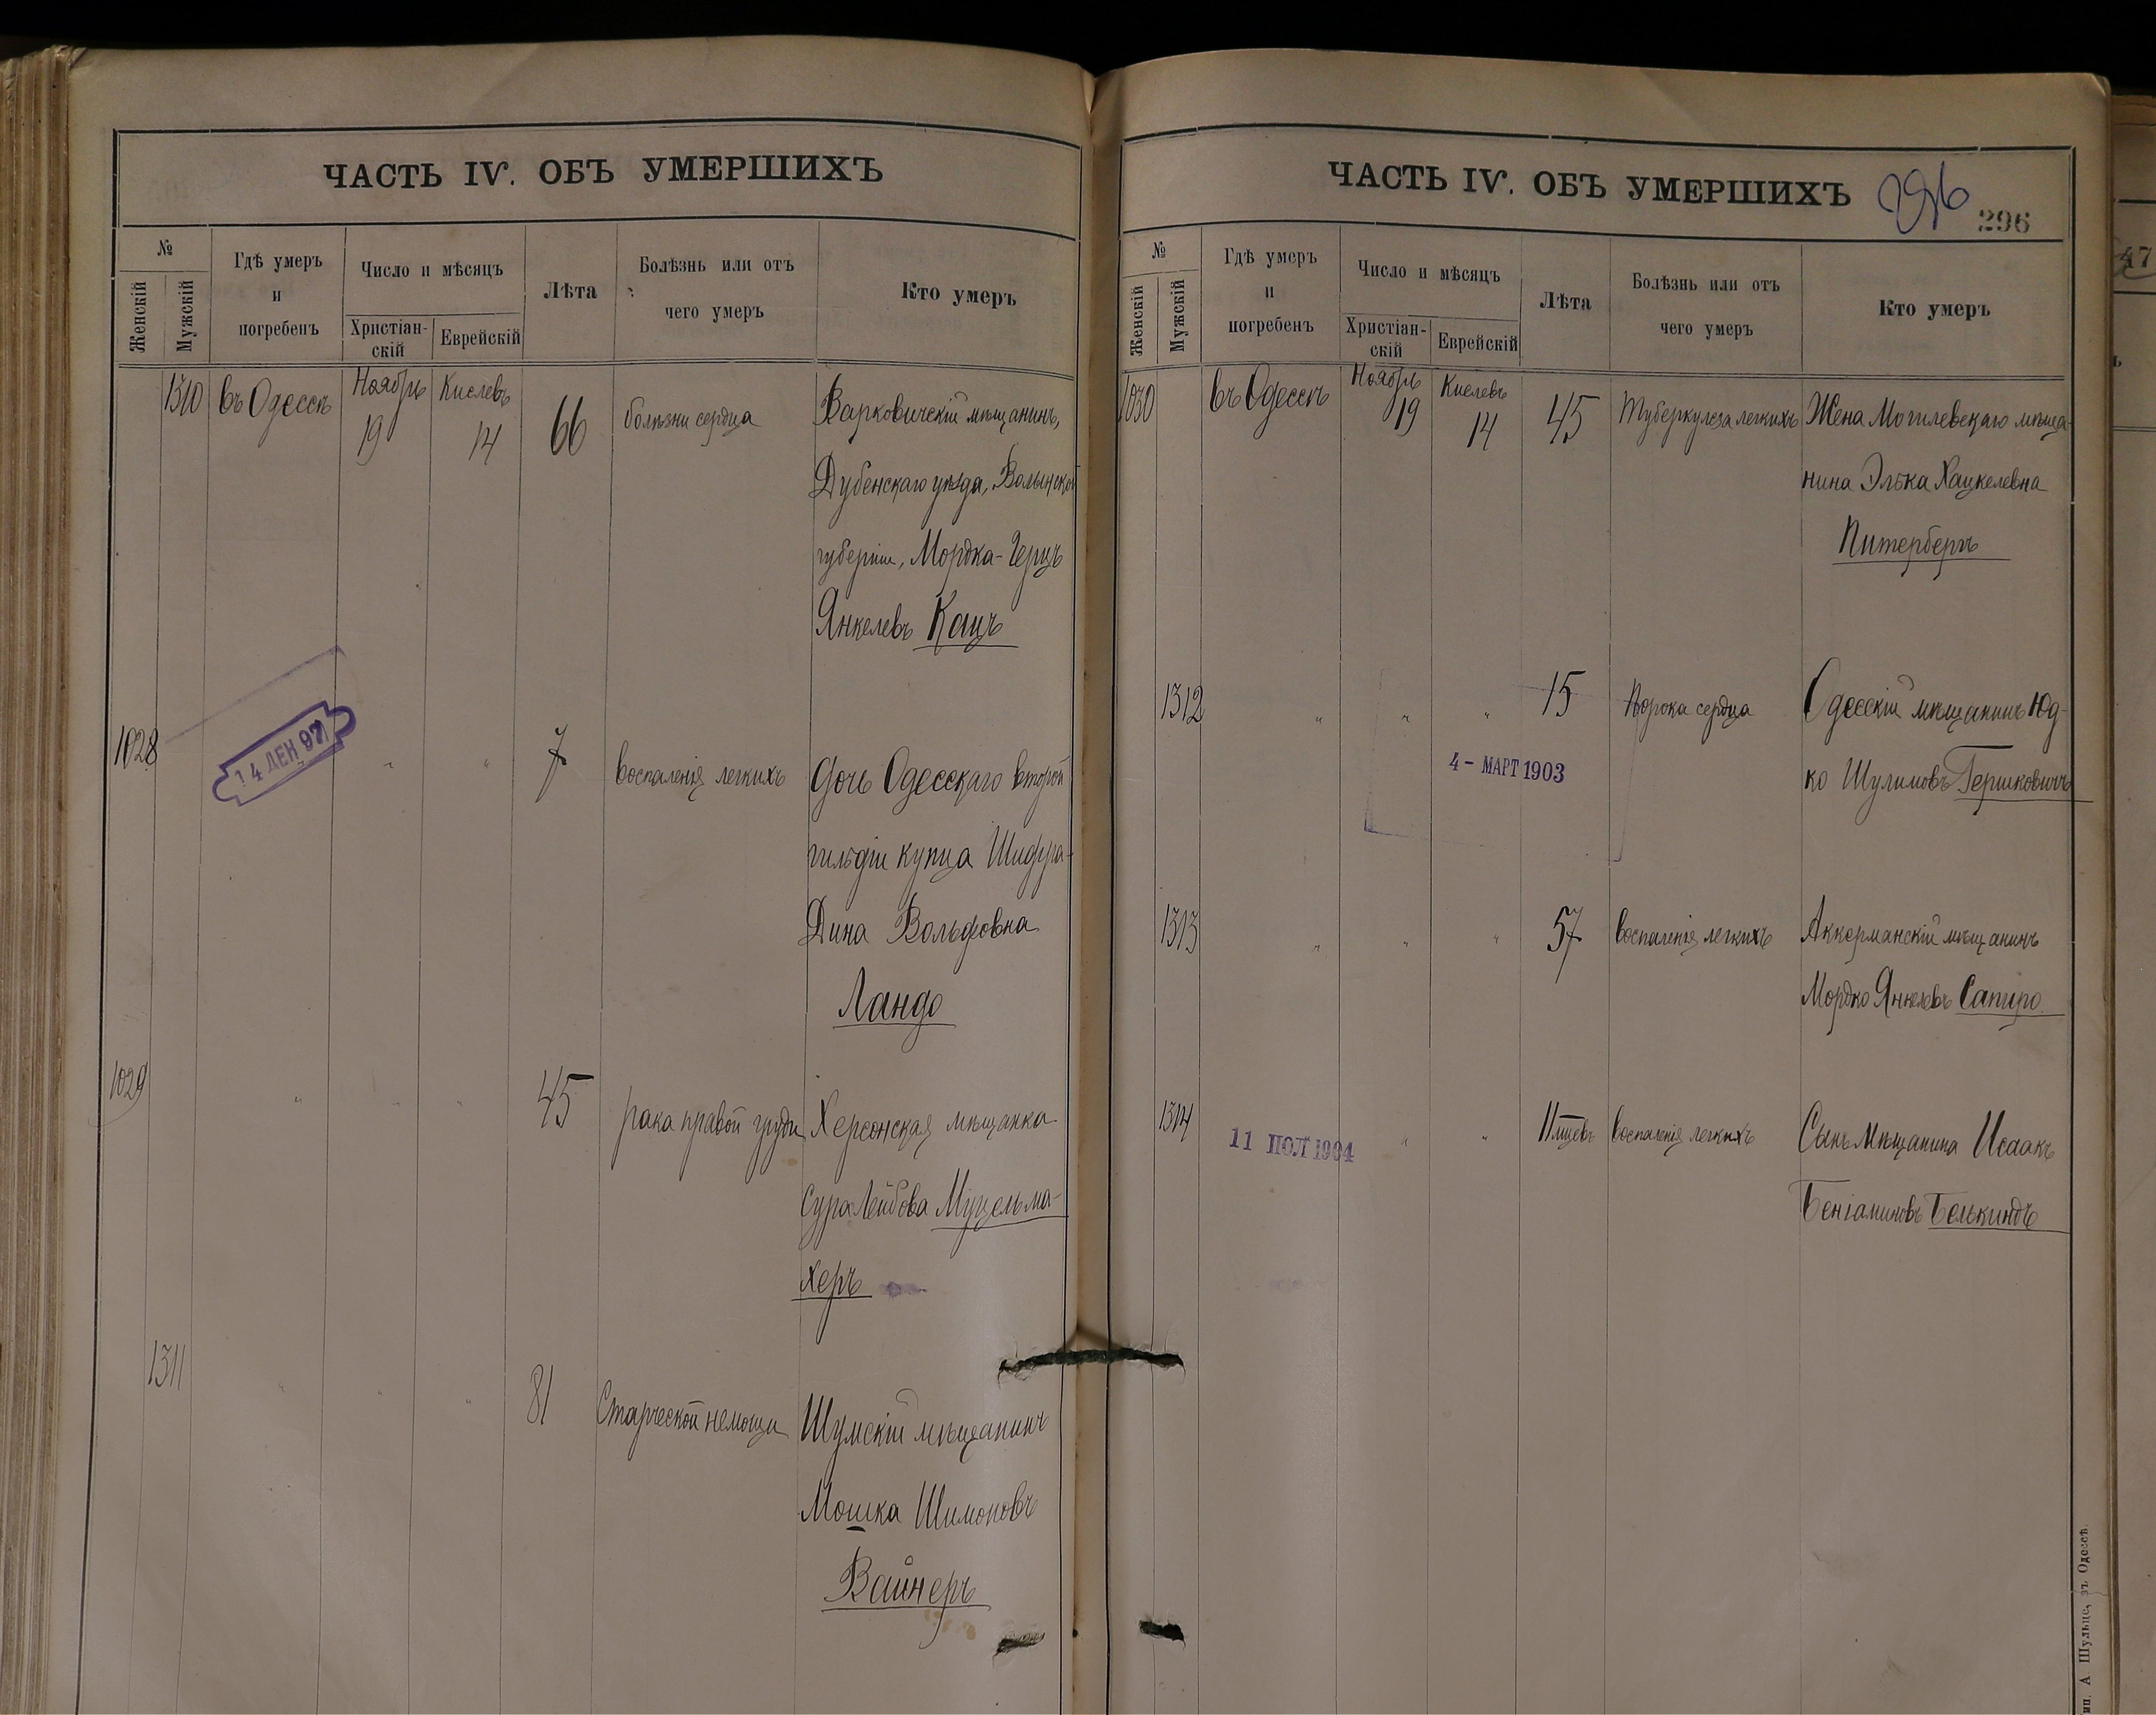 ЧАСТЬ IV. ОБЪ УМЕРШИХЪ
№
Женскій
Мужскій
Гдѣ умеръ
и
погребенъ
Число и мѣсяцъ
Христіан-
скій
Еврейскій
Лѣта
Болѣзнь или отъ
чего умеръ
Кто умеръ
1310 въ Одессѣ Ноябрь 19 Кислевъ 14 66 болѣзни сердца Варковическій мѣщанинъ,
Дубенскаго уѣзда, Волынской
губерніи, Мордка-Герцъ
Янкелевъ Кацъ
14 ДЕН 97
1028 " " 7 воспаленія легкихъ Дочь Одесскаго второй
гильдіи купца Шифра-
Дина Вольфовна
Ландо
1029 " " " 45 рака правой груди Херсонская мѣщанка
Сура Лейбова Муцельма-
херъ
1311 " " " 81 Старческой немощи Шумскій мѣщанинъ
Мошка Шимоновъ
Вайнеръ
ЧАСТЬ IV. ОБЪ УМЕРШИХЪ
296
296
№
Женскій
Мужскій
Гдѣ умеръ
и
погребенъ
Число и мѣсяцъ
Христіан-
скій
Еврейскій
Лѣта
Болѣзнь или отъ
чего умеръ
Кто умеръ
1030 въ Одессѣ Ноябрь 19 Кислевъ 14 45 Туберкулеза легкихъ Жена Могилевскаго мѣща-
нина Элька Хацкелевна
Питербергъ
1312 " " " 15 Порока сердца Одесскій мѣщанинъ Юд-
ко Шулимовъ Гершковичъ
4 - МАРТ 1903
1313 " " " 57 воспаленія легкихъ Аккерманскій мѣщанинъ
Мордко Янкелевъ Сапиро
1314 " " 11 мѣсяцевъ воспаленія легкихъ Сынъ Мѣщанина Исаакъ
Беніаминовъ Белькиндъ
11 ПОЛ 1904
А Шульце, въ Одессѣ.
47